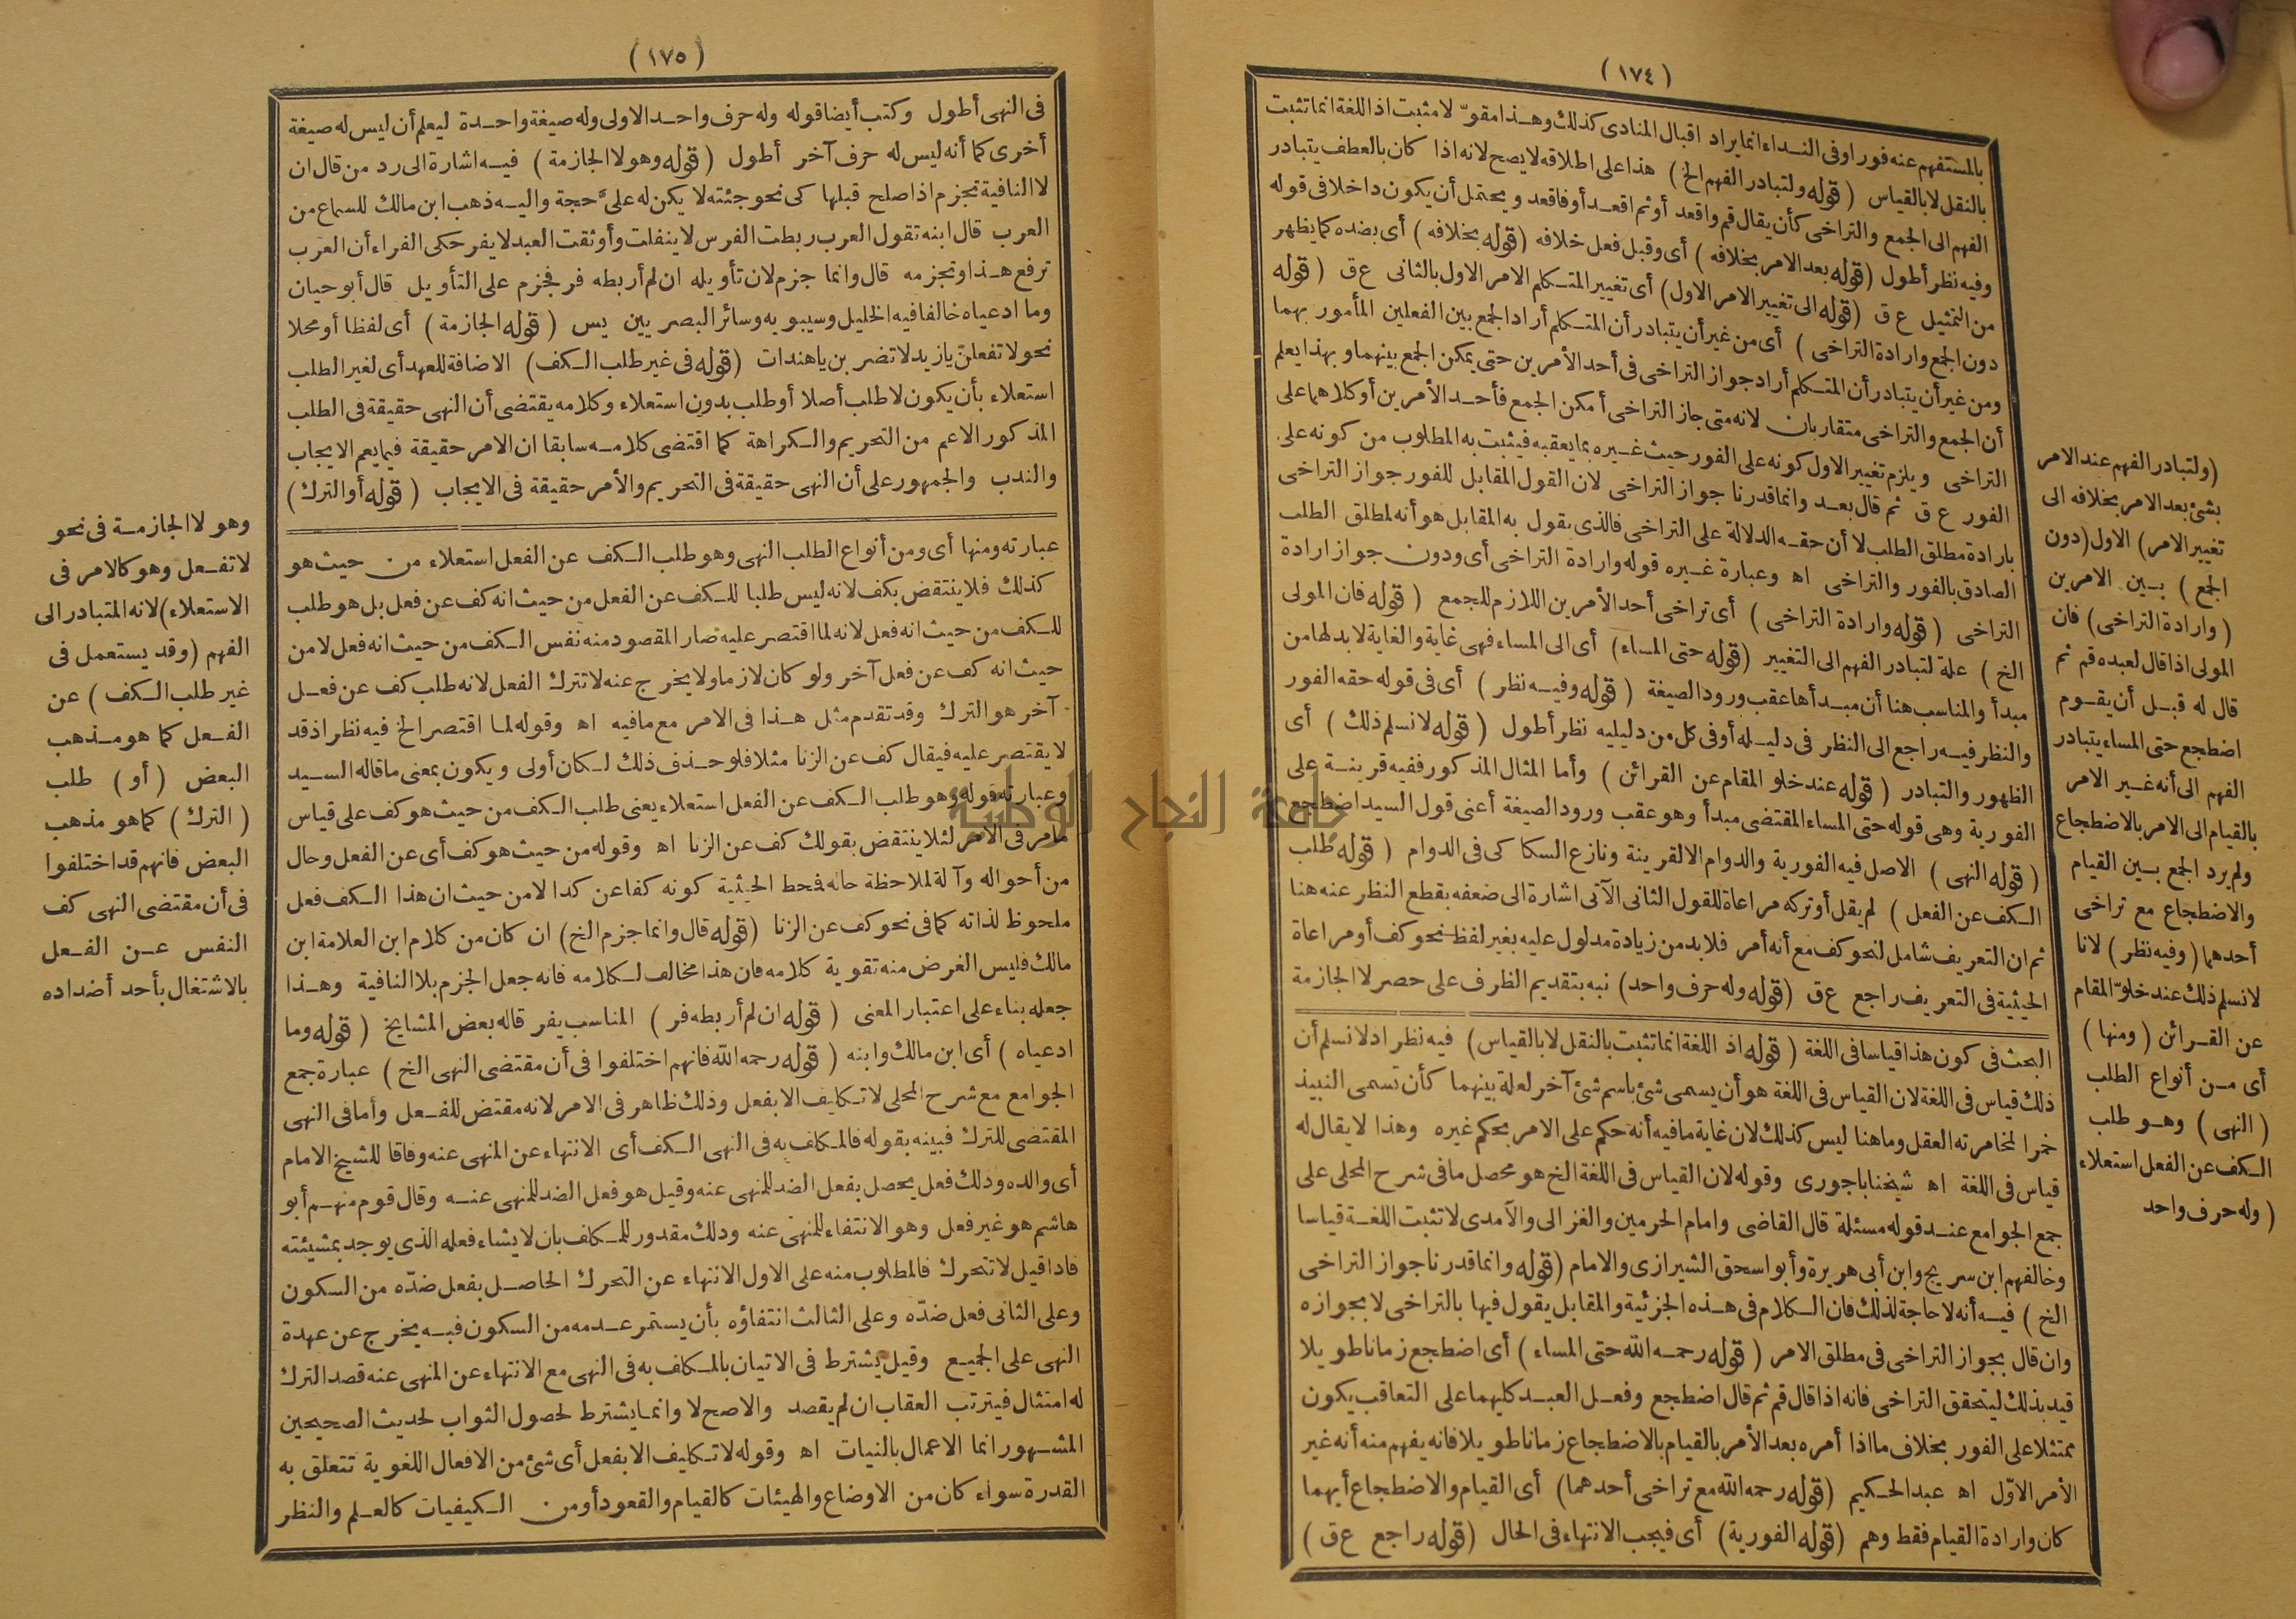 ( ١٧٤ )
بالمستفهم عنه فورا وفى النداء انما يراد اقبال المنادى كذلك وهذا مقوّ لا مثبت اذ اللغة انما تثبت
بالنقل لا بالقياس (قوله ولتبادر الفهم الخ) هذا على اطلاقه لا يصح لانه اذا كان بالعطف يتبادر
الفهم الى الجمع والتراخى كأن يقال قم واقعد أو ثم اقعد أو فاقعد ويحتمل أن يكون داخلا فى قوله
وفيه نظر أطول (قوله بعد الامر بخلافه) أى وقبل فعل خلافه (قوله بخلافه) أى بضده كما يظهر
من التمثيل ع ق (قوله الى تغيير الامر الاول) أى تغيير المتكلم الامر الاول بالثانى ع ق (قوله
دون الجمع وارادة التراخى) أى من غير أن يتبادر أن المتكلم أراد الجمع بين الفعلين المأمور بهما
ومن غير أن يتبادر أن المتكلم أراد جواز التراخى فى أحد الأمرين حتى يمكن الجمع بينهما وبهذا يعلم
أن الجمع والتراخى متقاربان لانه متى جاز التراخى أمكن الجمع فأحد الأمرين أو كلاهما على
التراخى ويلزم تغيير الاول كونه على الفور حيث غيره بما يعقبه فيثبت به المطلوب من كونه على
الفور ع ق ثم قال بعد وانما قدرنا جواز التراخى لان القول المقابل للفور جواز التراخى
بارادة مطلق الطلب لا أن حقه الدلالة على التراخى فالذى يقول به المقابل هو أنه لمطلق الطلب
الصادق بالفور والتراخى اه وعبارة غيره قوله وارادة التراخى أى ودون جواز ارادة
التراخى (قوله وارادة التراخى) أى تراخى أحد الأمرين اللازم للجمع (قوله فان المولى
الخ) علة لتبادر الفهم الى التغيير (قوله حتى المساء) أى الى المساء فهى غاية والغاية لا بد لها من
مبدأ والمناسب هنا أن مبدأها عقب ورود الصيغة (قوله وفيه نظر) أى فى قوله حقه الفور
والنظر فيه راجع الى النظر فى دليله أو فى كل من دليليه نظر أطول (قوله لا نسلم ذلك) أى
الظهور والتبادر (قوله عند خلو المقام عن القرائن) وأما المثال المذكور ففيه قرينة على
الفورية وهى قوله حتى المساء المقتضى مبدأ وهو عقب ورود الصيغة أعنى قول السيد اضطجع
(قوله النهى) الاصل فيه الفورية والدوام الا لقرينة ونازع السكاكى فى الدوام (قوله طلب
الكف عن الفعل) لم يقل أو تركه مراعاة للقول الثانى الآتى اشارة الى ضعفه بقطع النظر عنه هنا
ثم ان التعريف شامل لنحو كف مع أنه أمر فلا بد من زيادة مدلول عليه بغير لفظ نحو كف أو مراعاة
الحيثية فى التعريف راجع ع ق (قوله وله حرف واحد) نبه بتقديم الظرف على حصر لا الجازمة
البحث فى كون هذا قياسا فى اللغة (قوله اذ اللغة انما تثبت بالنقل لا بالقياس) فيه نظر اذ لا نسلم أن
ذلك قياس فى اللغة لان القياس فى اللغة هو أن يسمى شئ باسم شئ آخر لعلة بينهما كأن تسمى النبيذ
خمرا لمخامرته العقل وما هنا ليس كذلك لان غاية ما فيه أنه حكم على الامر بحكم غيره وهذا لا يقال له
قياس فى اللغة اه شيخنا باجورى وقوله لان القياس فى اللغة الخ هو محصل ما فى شرح المحلى على
جمع الجوامع عند قوله مسئلة قال القاضى وامام الحرمين والغزالى والآمدى لا تثبت اللغة قياسا
وخالفهم ابن سريج وابن أبى هريرة وأبو اسحق الشيرازى والامام (قوله وانما قدرنا جواز التراخى
الخ) فيه أنه لا حاجة لذلك فان الكلام فى هذه الجزئية والمقابل يقول فيها بالتراخى لا بجوازه
وان قال بجواز التراخى فى مطلق الامر (قوله رحمه الله حتى المساء) أى اضطجع زمانا طويلا
قيد بذلك ليتحقق التراخى فانه اذا قال قم ثم قال اضطجع وفعل العبد كليهما على التعاقب يكون
ممتثلا على الفور بخلاف ما اذا أمره بعد الأمر بالقيام بالاضطجاع زمانا طويلا فانه يفهم منه أنه غير
الأمر الاوّل اه عبد الحكيم (قوله رحمه الله مع تراخى أحدهما) أى القيام والاضطجاع أيهما
كان وارادة القيام فقط وهم (قوله الفورية) أى فيجب الانتهاء فى الحال (قوله راجع ع ق)
(ولتبادر الفهم عند الامر
بشئ بعد الامر بخلافه الى
تغيير الامر) الاول (دون
الجمع) بين الامرين
(وارادة التراخى) فان
المولى اذا قال لعبده قم ثم
قال له قبل أن يقوم
اضطجع حتى المساء يتبادر
الفهم الى أنه غير الامر
بالقيام الى الامر بالاضطجاع
ولم يرد الجمع بين القيام
والاضطجاع مع تراخى
أحدهما (وفيه نظر) لانا
لا نسلم ذلك عند خلوّ المقام
عن القرائن (ومنها)
أى من أنواع الطلب
(النهى) وهو طلب
الكف عن الفعل استعلاء
(وله حرف واحد
( ١٧٥ )
فى النهى أطول وكتب أيضا قوله وله حرف واحد الاولى وله صيغة واحدة ليعلم أن ليس له صيغة
أخرى كما أنه ليس له حرف آخر أطول (قوله وهو لا الجازمة) فيه اشارة الى رد من قال ان
لا النافية تجزم اذا صلح قبلها كى نحو جئته لا يكن له علىّ حجة واليه ذهب ابن مالك للسماع من
العرب قال ابنه تقول العرب ربطت الفرس لا ينفلت وأوثقت العبد لا يفر حكى الفراء أن العرب
ترفع هذا وتجزمه قال وانما جزم لان تأويله ان لم أربطه فر فجزم على التأويل قال أبو حيان
وما ادعياه خالفا فيه الخليل وسيبويه وسائر البصريين يس (قوله الجازمة) أى لفظا أو محلا
نحو لا تفعلنّ يا زيد لا تضربن يا هندات (قوله فى غير طلب الكف) الاضافة للعهد أى لغير الطلب
استعلاء بأن يكون لا طلب أصلا أو طلب بدون استعلاء وكلامه يقتضى أن النهى حقيقة فى الطلب
المذكور الاعم من التحريم والكراهة كما اقتضى كلامه سابقا ان الامر حقيقة فيما يعم الايجاب
والندب والجمهور على أن النهى حقيقة فى التحريم والأمر حقيقة فى الايجاب (قوله أو الترك)
عبارته ومنها أى ومن أنواع الطلب النهى وهو طلب الكف عن الفعل استعلاء من حيث هو
كذلك فلا ينتقض بكف لانه ليس طلبا للكف عن الفعل من حيث انه كف عن فعل بل هو طلب
للكف من حيث انه فعل لانه لما اقتصر عليه صار المقصود منه نفس الكف من حيث انه فعل لا من
حيث انه كف عن فعل آخر ولو كان لازما ولا يخرج عنه لا تترك الفعل لانه طلب كف عن فعل
آخر هو الترك وقد تقدم مثل هذا فى الامر مع ما فيه اه وقوله لما اقتصر الخ فيه نظر اذ قد
لا يقتصر عليه فيقال كف عن الزنا مثلا فلو حذف ذلك لكان أولى ويكون بمعنى ما قاله السيد
وعبارته قوله وهو طلب الكف عن الفعل استعلاء يعنى طلب الكف من حيث هو كف على قياس
ما مر فى الامر لئلا ينتقض بقولك كف عن الزنا اه وقوله من حيث هو كف أى عن الفعل وحال
من أحواله وآلة لملاحظة حاله فحط الحيثية كونه كفا عن كذا لا من حيث ان هذا الكف فعل
ملحوظ لذاته كما فى نحو كف عن الزنا (قوله قال وانما جزم الخ) ان كان من كلام ابن العلامة ابن
مالك فليس الغرض منه تقوية كلامه فان هذا مخالف لكلامه فانه جعل الجزم بلا النافية وهذا
جعله بناء على اعتبار المعنى (قوله ان لم أربطه فر) المناسب يفر قاله بعض المشايخ (قوله وما
ادعياه) أى ابن مالك وابنه (قوله رحمه الله فانهم اختلفوا فى أن مقتضى النهى الخ) عبارة جمع
الجوامع مع شرح المحلى لا تكليف الا بفعل وذلك ظاهر فى الامر لانه مقتض للفعل وأما فى النهى
المقتضى للترك فبينه بقوله فالمكلف به فى النهى الكف أى الانتهاء عن المنهى عنه وفاقا للشيخ الامام
أى والده وذلك فعل يحصل بفعل الضد للمنهى عنه وقيل هو فعل الضد للمنهى عنه وقال قوم منهم أبو
هاشم هو غير فعل وهو الانتفاء للمنهى عنه وذلك مقدور للمكلف بان لا يشاء فعله الذى يوجد بمشيئته
فاذا قيل لا تتحرك فالمطلوب منه على الاول الانتهاء عن التحرك الحاصل بفعل ضدّه من السكون
وعلى الثانى فعل ضدّه وعلى الثالث انتفاؤه بأن يستمر عدمه من السكون فبه يخرج عن عهدة
النهى على الجميع وقيل يشترط فى الاتيان بالمكلف به فى النهى مع الانتهاء عن المنهى عنه قصد الترك
له امتثال فيترتب العقاب ان لم يقصد والاصح لا وانما يشترط لحصول الثواب لحديث الصحيحين
المشهور انما الاعمال بالنيات اه وقوله لا تكليف الا بفعل أى شئ من الافعال اللغوية تتعلق به
القدرة سواء كان من الاوضاع والهيئات كالقيام والقعود أو من الكيفيات كالعلم والنظر
وهو لا الجازمة فى نحو
لا تفعل وهو كالامر فى
الاستعلاء) لانه المتبادر الى
الفهم (وقد يستعمل فى
غير طلب الكف) عن
الفعل كما هو مذهب
البعض (أو) طلب
(الترك) كما هو مذهب
البعض فانهم قد اختلفوا
فى أن مقتضى النهى كف
النفس عن الفعل
بالاشتغال بأحد أضداده
جامعة النجاح الوطنية